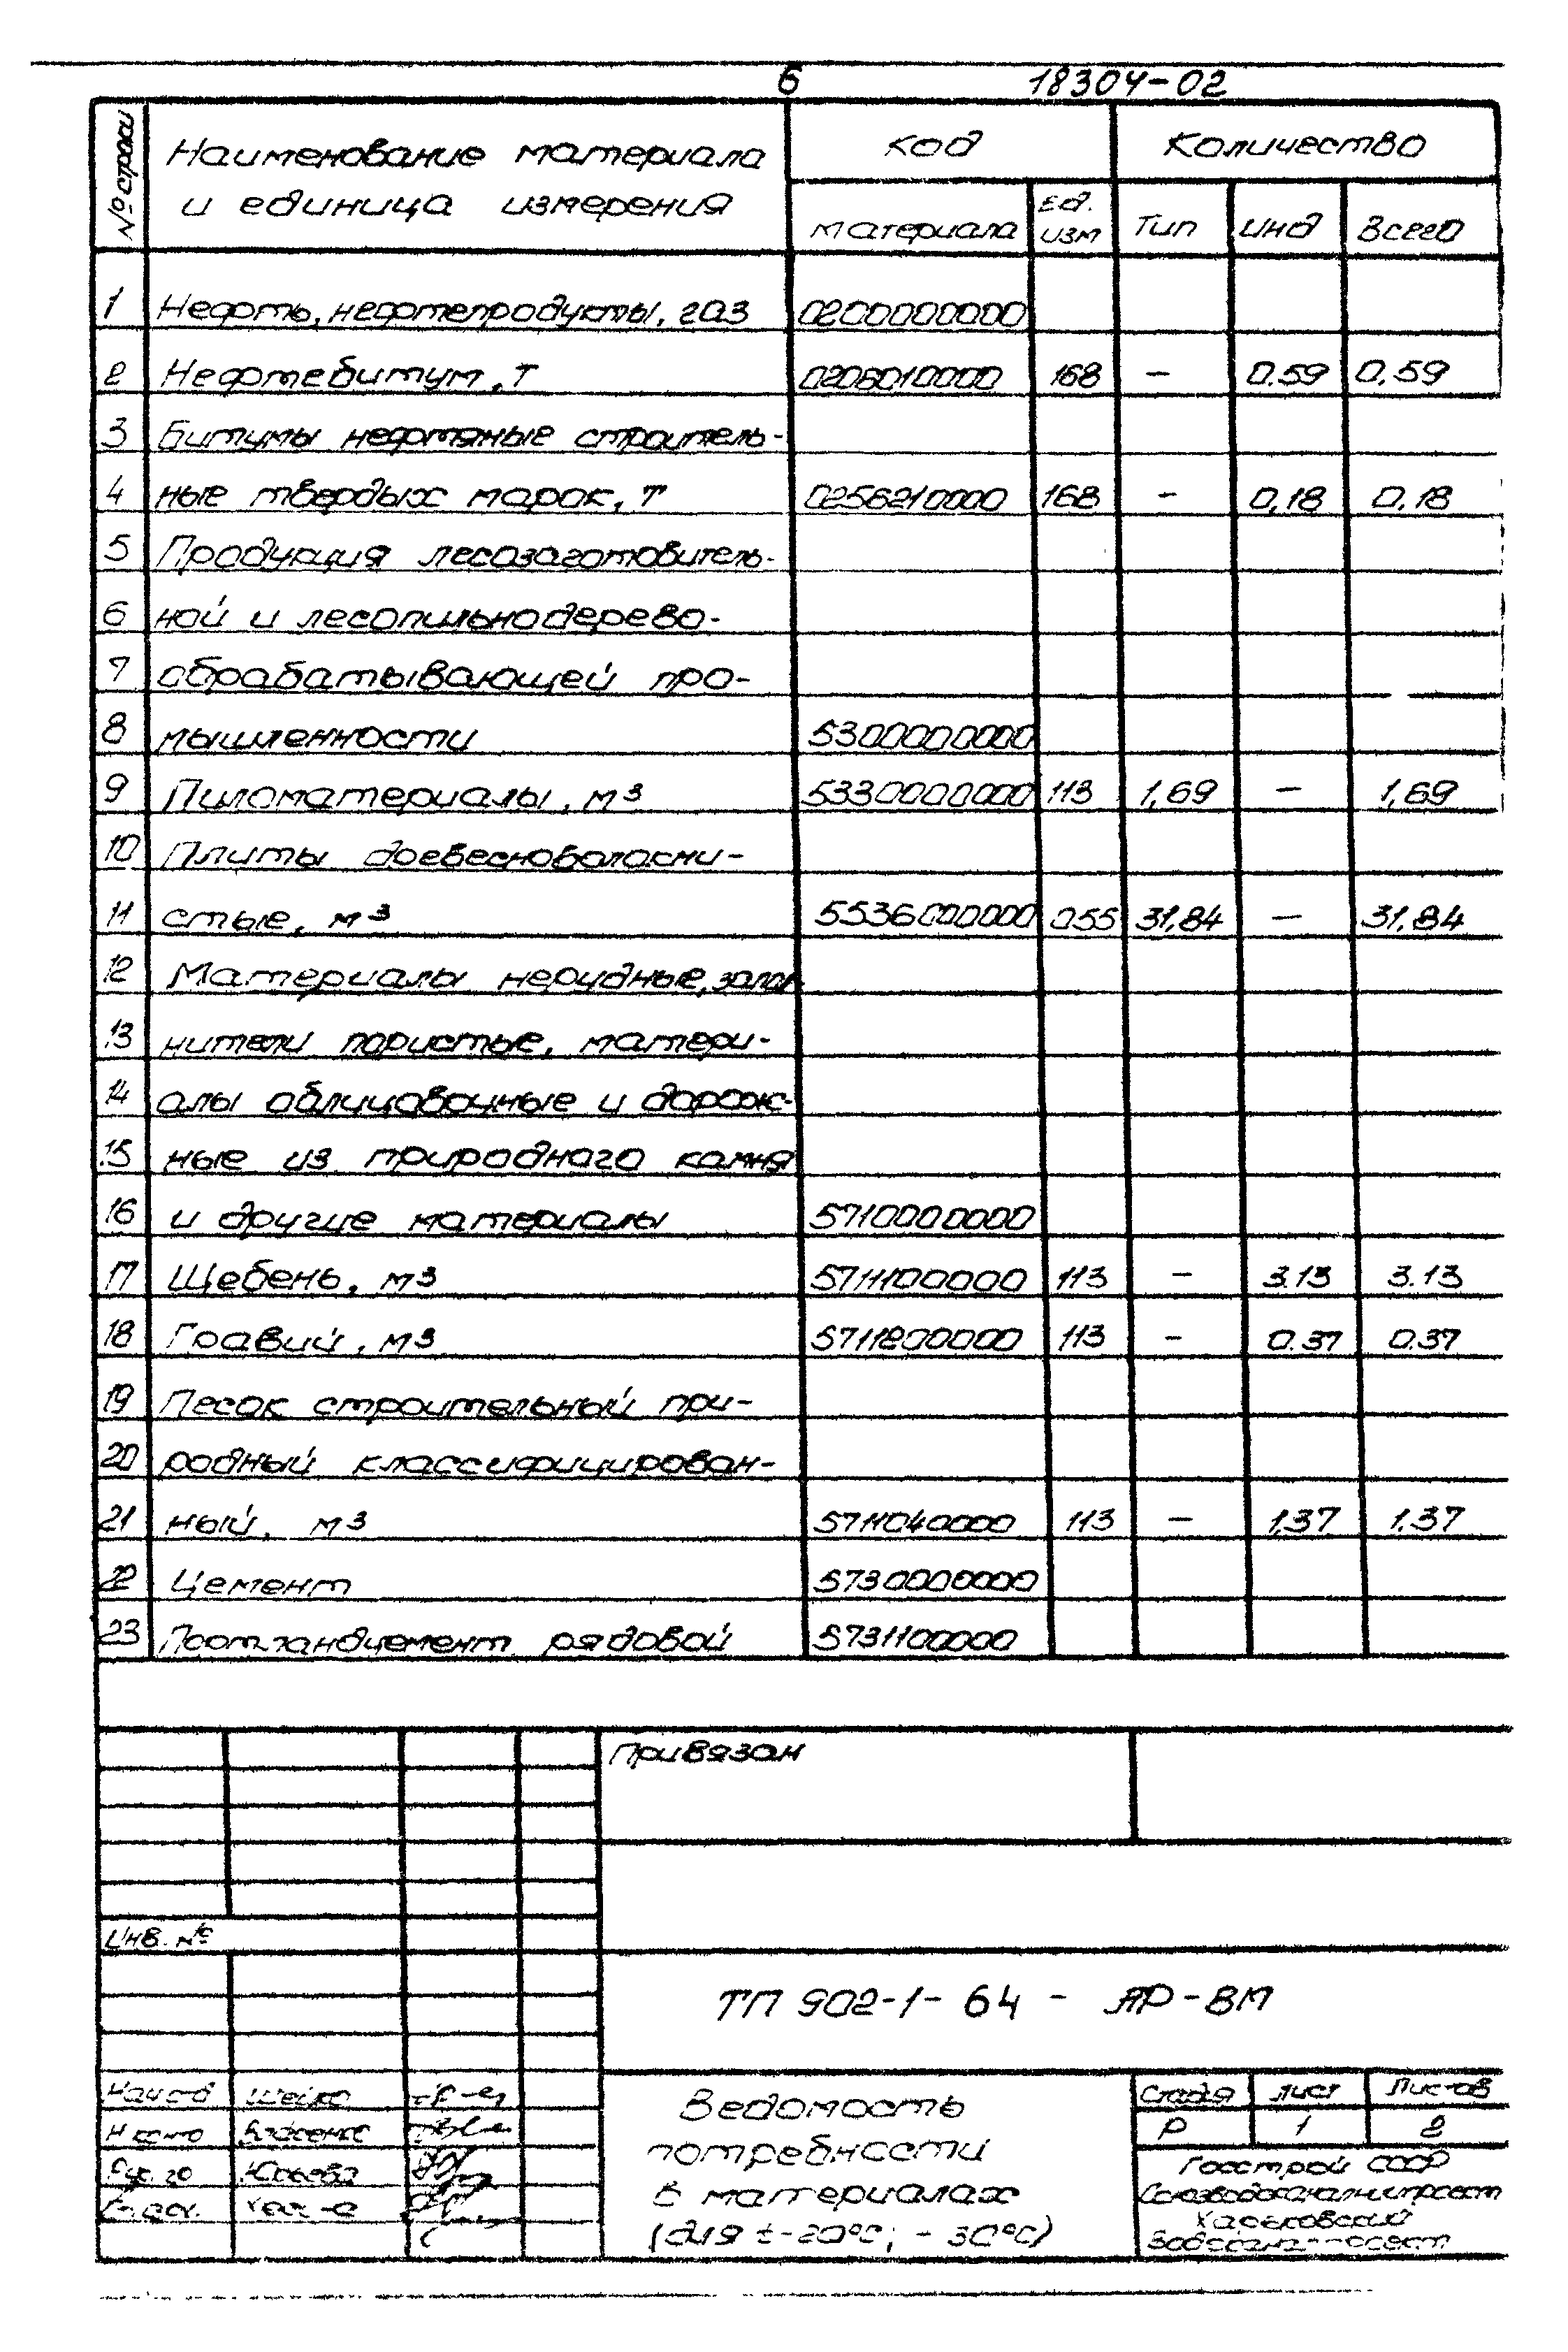 6 18304-02
№ строки Наименование материала и единица измерения Код Количество
материала Ед. изм Тип Инд Всего
1 Нефть, нефтепродукты, газ 0200000000
2 Нефтебитум, т 0206010000 168 — 0.59 0,59
3 Битумы нефтяные строитель-
4 ные твердых марок, т 0256210000 168 — 0,18 0,18
5 Продукция лесозаготовитель-
6 ной и лесопильнодерево-
7 обрабатывающей про-
8 мышленности 5300000000
9 Пиломатериалы, м3 5330000000 113 1,69 — 1,69
10 Плиты древесноволокни-
11 стые, м3 5536000000 055 31,84 — 31,84
12 Материалы нерудные, запол-
13 нители пористые, матери-
14 алы облицовочные и дорож-
15 ные из природного камня
16 и другие материалы 5710000000
17 Щебень, м3 5711100000 113 — 3.13 3.13
18 Гравий, м3 5711200000 113 — 0.37 0.37
19 Песок строительный при-
20 родный классифицирован-
21 ный, м3 5711040000 113 — 1,37 1.37
22 Цемент 5730000000
23 Портландцемент рядовой 5731100000
Привязан
Инв. №
ТП 902-1-64 - АР-ВМ
Нач.отд Шейко
Н.контр Власенко
Рук. гр Юрьева
Ведомость
потребности
в материалах
(для t-20°С; -30°С)
Стадия Лист Листов
Р 1 2
Госстрой СССР
Союзводоканалниипроект
Харьковский
Водоканалпроект